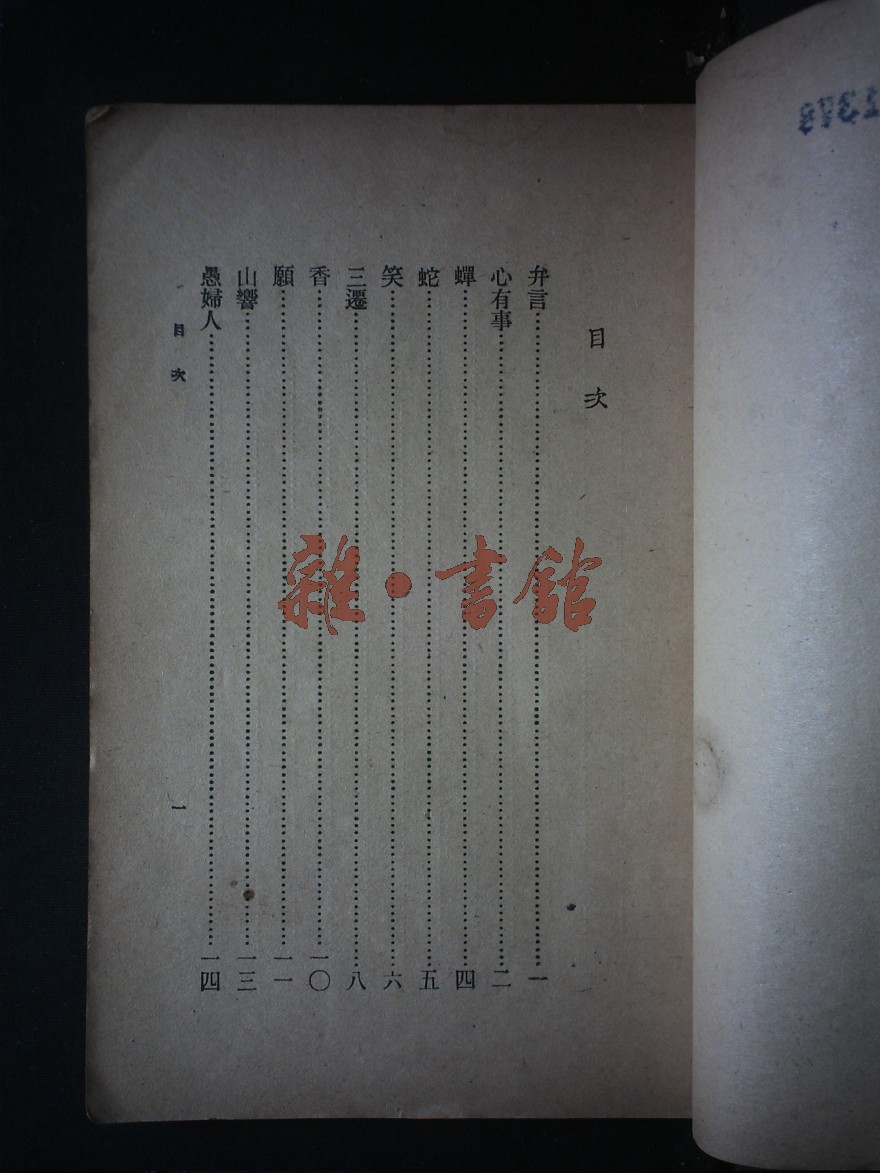 目次
弁言…………一
心有事…………二
蟬…………四
蛇…………五
笑…………六
三遷…………八
香…………一〇
願…………一一
山響…………一三
愚婦人…………一四
目次 一
雜·書館